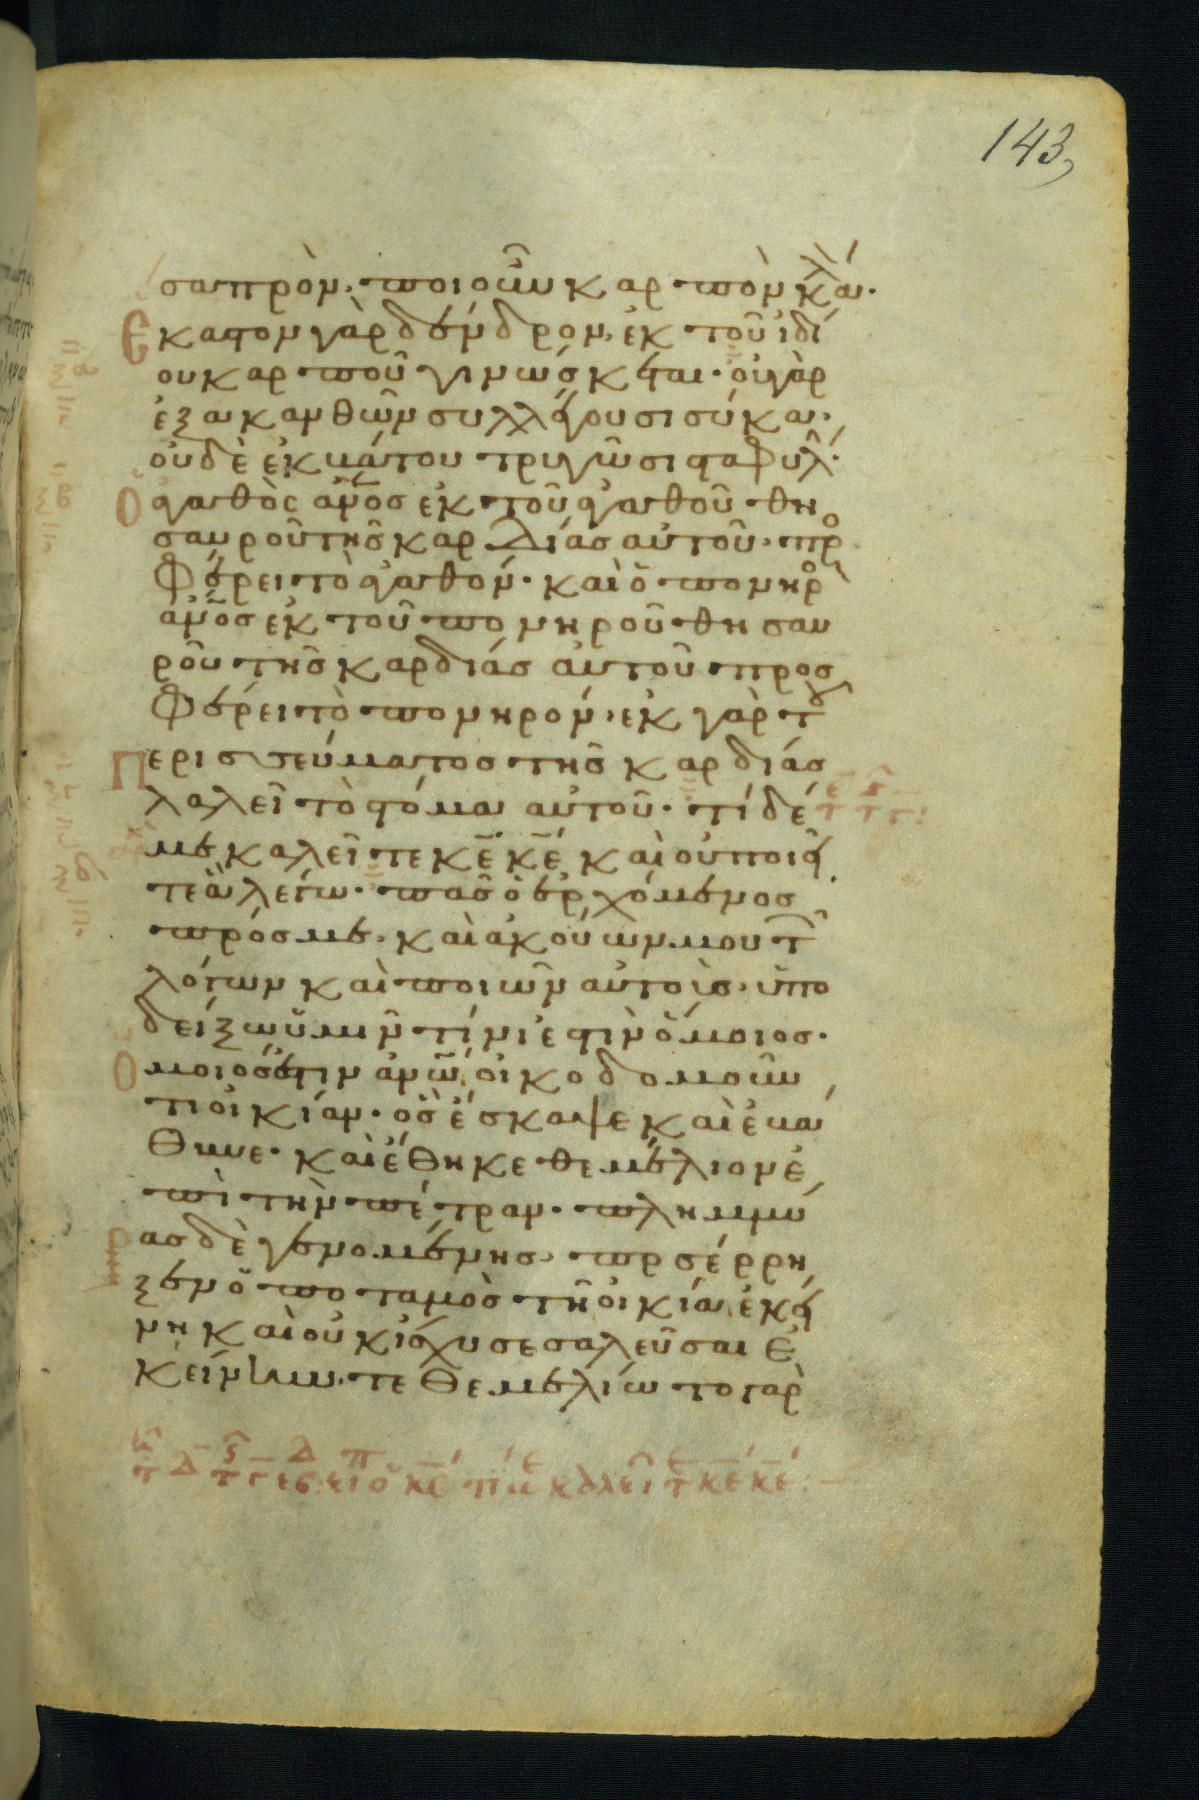 143
σαπρὸν· ποιοῦν καρπὸν κάλ·
Ἕκαστον γὰρ δένδρον, ἐκ τοῦ ἰδί
ου καρποῦ γινώσκεται· οὐ γὰρ
ἐξ ακανθῶν συλλέγουσι σύκα·
οὐδὲ ἐκ βάτου τρυγῶσι σταφυλ·
Ὁ ἀγαθὸς ἀν̅ο̅σ ἐκ τοῦ ἀγαθοῦ θη
σαυροῦ τῆς καρδίας αὐτοῦ· προ
φέρει τὸ ἀγαθόν· καὶ ὁ πονηρὸ
ἀν̅ο̅σ ἐκ τοῦ πονηροῦ θησαυ
ροῦ τῆς καρδίας αὐτοῦ προσ
φέρει τὸ πονηρόν· ἐκ γὰρ τοῦ
Περισσεύματος τῆς καρδίας
λαλεῖ τὸ στόμα αὐτοῦ· τί δέ
με καλεῖτε κ̅ε̅ κ̅ε̅ καὶ οὐ ποιεῖ
τε ἃ λέγω· πᾶς ὁ ἐρχόμενος
πρός με· καὶ ἀκούων μου τῶν
λόγων καὶ ποιῶν αὐτοὺς· ὑπο
δείξω ὑμῖν τίνι ἐστὶν ὅμοιος·
Ὅμοιός ἐστιν ἀν̅ω̅ οἰκοδομοῦν
τι οἰκίαν· ὃς ἔσκαψε καὶ ἐβά
θυνε· καὶ ἔθηκε θεμέλιον ἐ
πὶ τὴν πέτραν· πλημμύ
ρας δὲ γενομένης· προσέρρη
ξεν ὁ ποταμὸς τῇ οἰκία ἐκεί
νη καὶ οὐκ ἴσχυσε σαλεῦσαι ἐ
κείνην· τεθεμελίωτο γὰρ